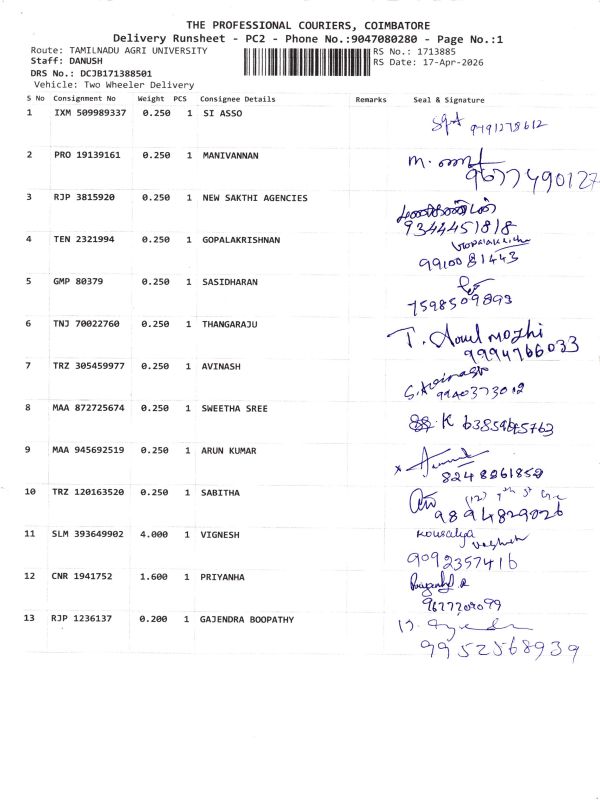 THE PROFESSIONAL COURIERS, COIMBATORE
Delivery Runsheet - PC2 - Phone No.:9047080280 - Page No.:1
Route: TAMILNADU AGRI UNIVERSITY RS No.: 1713885
Staff: DANUSH RS Date: 17-Apr-2026
DRS No.: DCJB171388501
Vehicle: Two Wheeler Delivery
S No Consignment No Weight PCS Consignee Details Remarks Seal & Signature
1 IXM 509989337 0.250 1 SI ASSO
9791278612
2 PRO 19139161 0.250 1 MANIVANNAN M.
9677490127
3 RJP 3815920 0.250 1 NEW SAKTHI AGENCIES
மணிகண்டன்
9344451818
4 TEN 2321994 0.250 1 GOPALAKRISHNAN
9910081443
5 GMP 80379 0.250 1 SASIDHARAN
7598509893
6 TNJ 70022760 0.250 1 THANGARAJU
T.
9994766033
7 TRZ 305459977 0.250 1 AVINASH
S. Avinash
9940373012
8 MAA 872725674 0.250 1 SWEETHA SREE
K
9 MAA 945692519 0.250 1 ARUN KUMAR
10 TRZ 120163520 0.250 1 SABITHA
9894829026
11 SLM 393649902 4.000 1 VIGNESH
Kousalya
9092357416
12 CNR 1941752 1.600 1 PRIYANHA
13 RJP 1236137 0.200 1 GAJENDRA BOOPATHY
9952568939